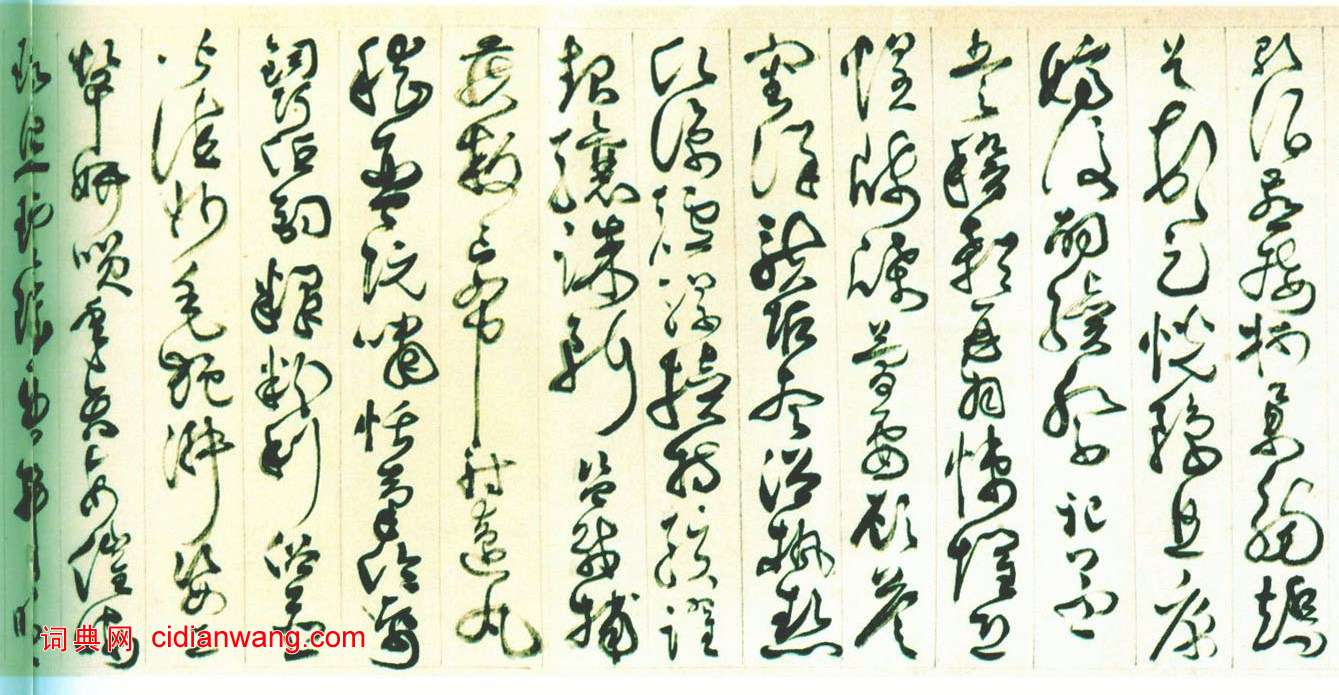 歌酒讌接杯舉觴矯
手頓足悅豫且康
嫡後嗣續祭祀蒸
嘗稽顙再拜悚懼恐
惶牋牒簡要顧答
審詳骸垢想浴執熱
願涼驢騾犢特駭躍
超驤誅斬賊盜捕
獲叛亡布射遼丸
嵇琴阮嘯恬筆倫紙
鈞巧任釣釋紛利俗並
皆佳妙毛施淑姿工
顰妍笑年矢每催曦
词典网 cidianwang.com